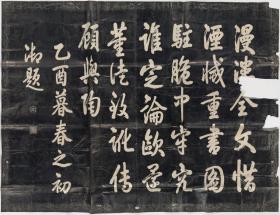 漫漶全文惜
湮滅重書圖
駐脆中牢究
誰定論歐還
董徒致訛傳
顧與陶
乙酉暮春之初
御題